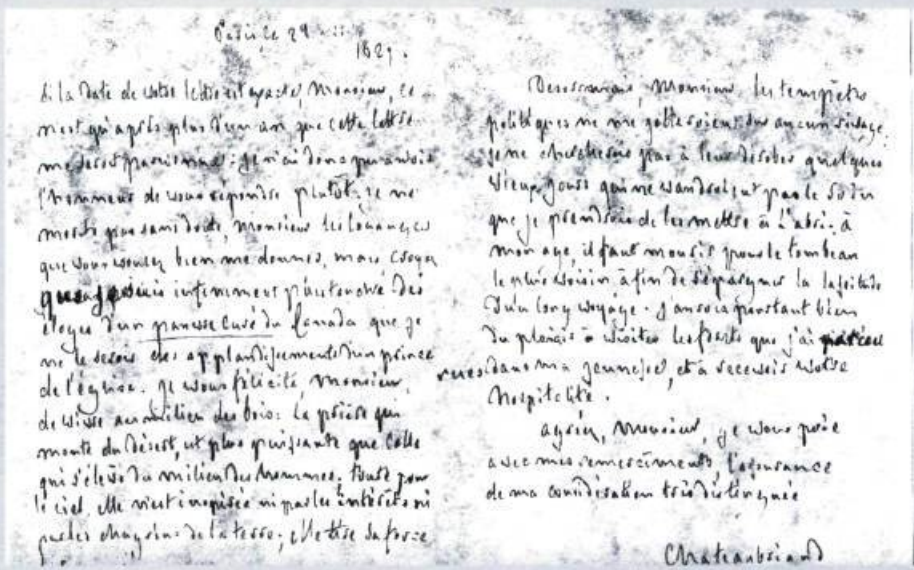 Paris, ce 29
1827.
Si la date de votre lettre est exacte, Monsieur, ce
n'est qu'après plus d'un an que cette lettre
me sera parvenue: je n'ai donc pu avoir
l'honneur de vous répondre plutôt. Je ne
mérite pas sans doute, Monsieur les louanges
que vous voulez bien me donner, mais croyez
que je suis infiniment plus touché des
éloges d'un pauvre curé du Canada que je
ne le serois des applaudissements d'un prince
de l'église. Je vous félicite Monsieur,
de vivre au milieu des bois: la prière qui
monte du désert, est plus puissante que celle
qui s'élève du milieu des hommes, toute pour
le ciel, elle n'est inspirée ni par les intérêts ni
par les chagrins de la terre; elle tire sa force
Desormais, Monsieur les tempêtes
politiques ne me jetteroient sur aucun rivage.
je ne chercherois pas à leur dérober quelques
vieux jours qui ne vaudroient pas le soin
que je prendrois de les mettre à l'abri: à
mon age, il faut mourir pour le tombeau
le plus voisin à fin de s'épargner la lassitude
d'un long voyage. J'aurois pourtant bien
du plaisir à visiter les forêts que j'ai parcou
rues dans ma jeunesse, et à recevoir votre
hospitalité.
agréez, Monsieur, je vous prie
avec mes remercîments, l'assurance
de ma considération très distinguée
Chateaubriand